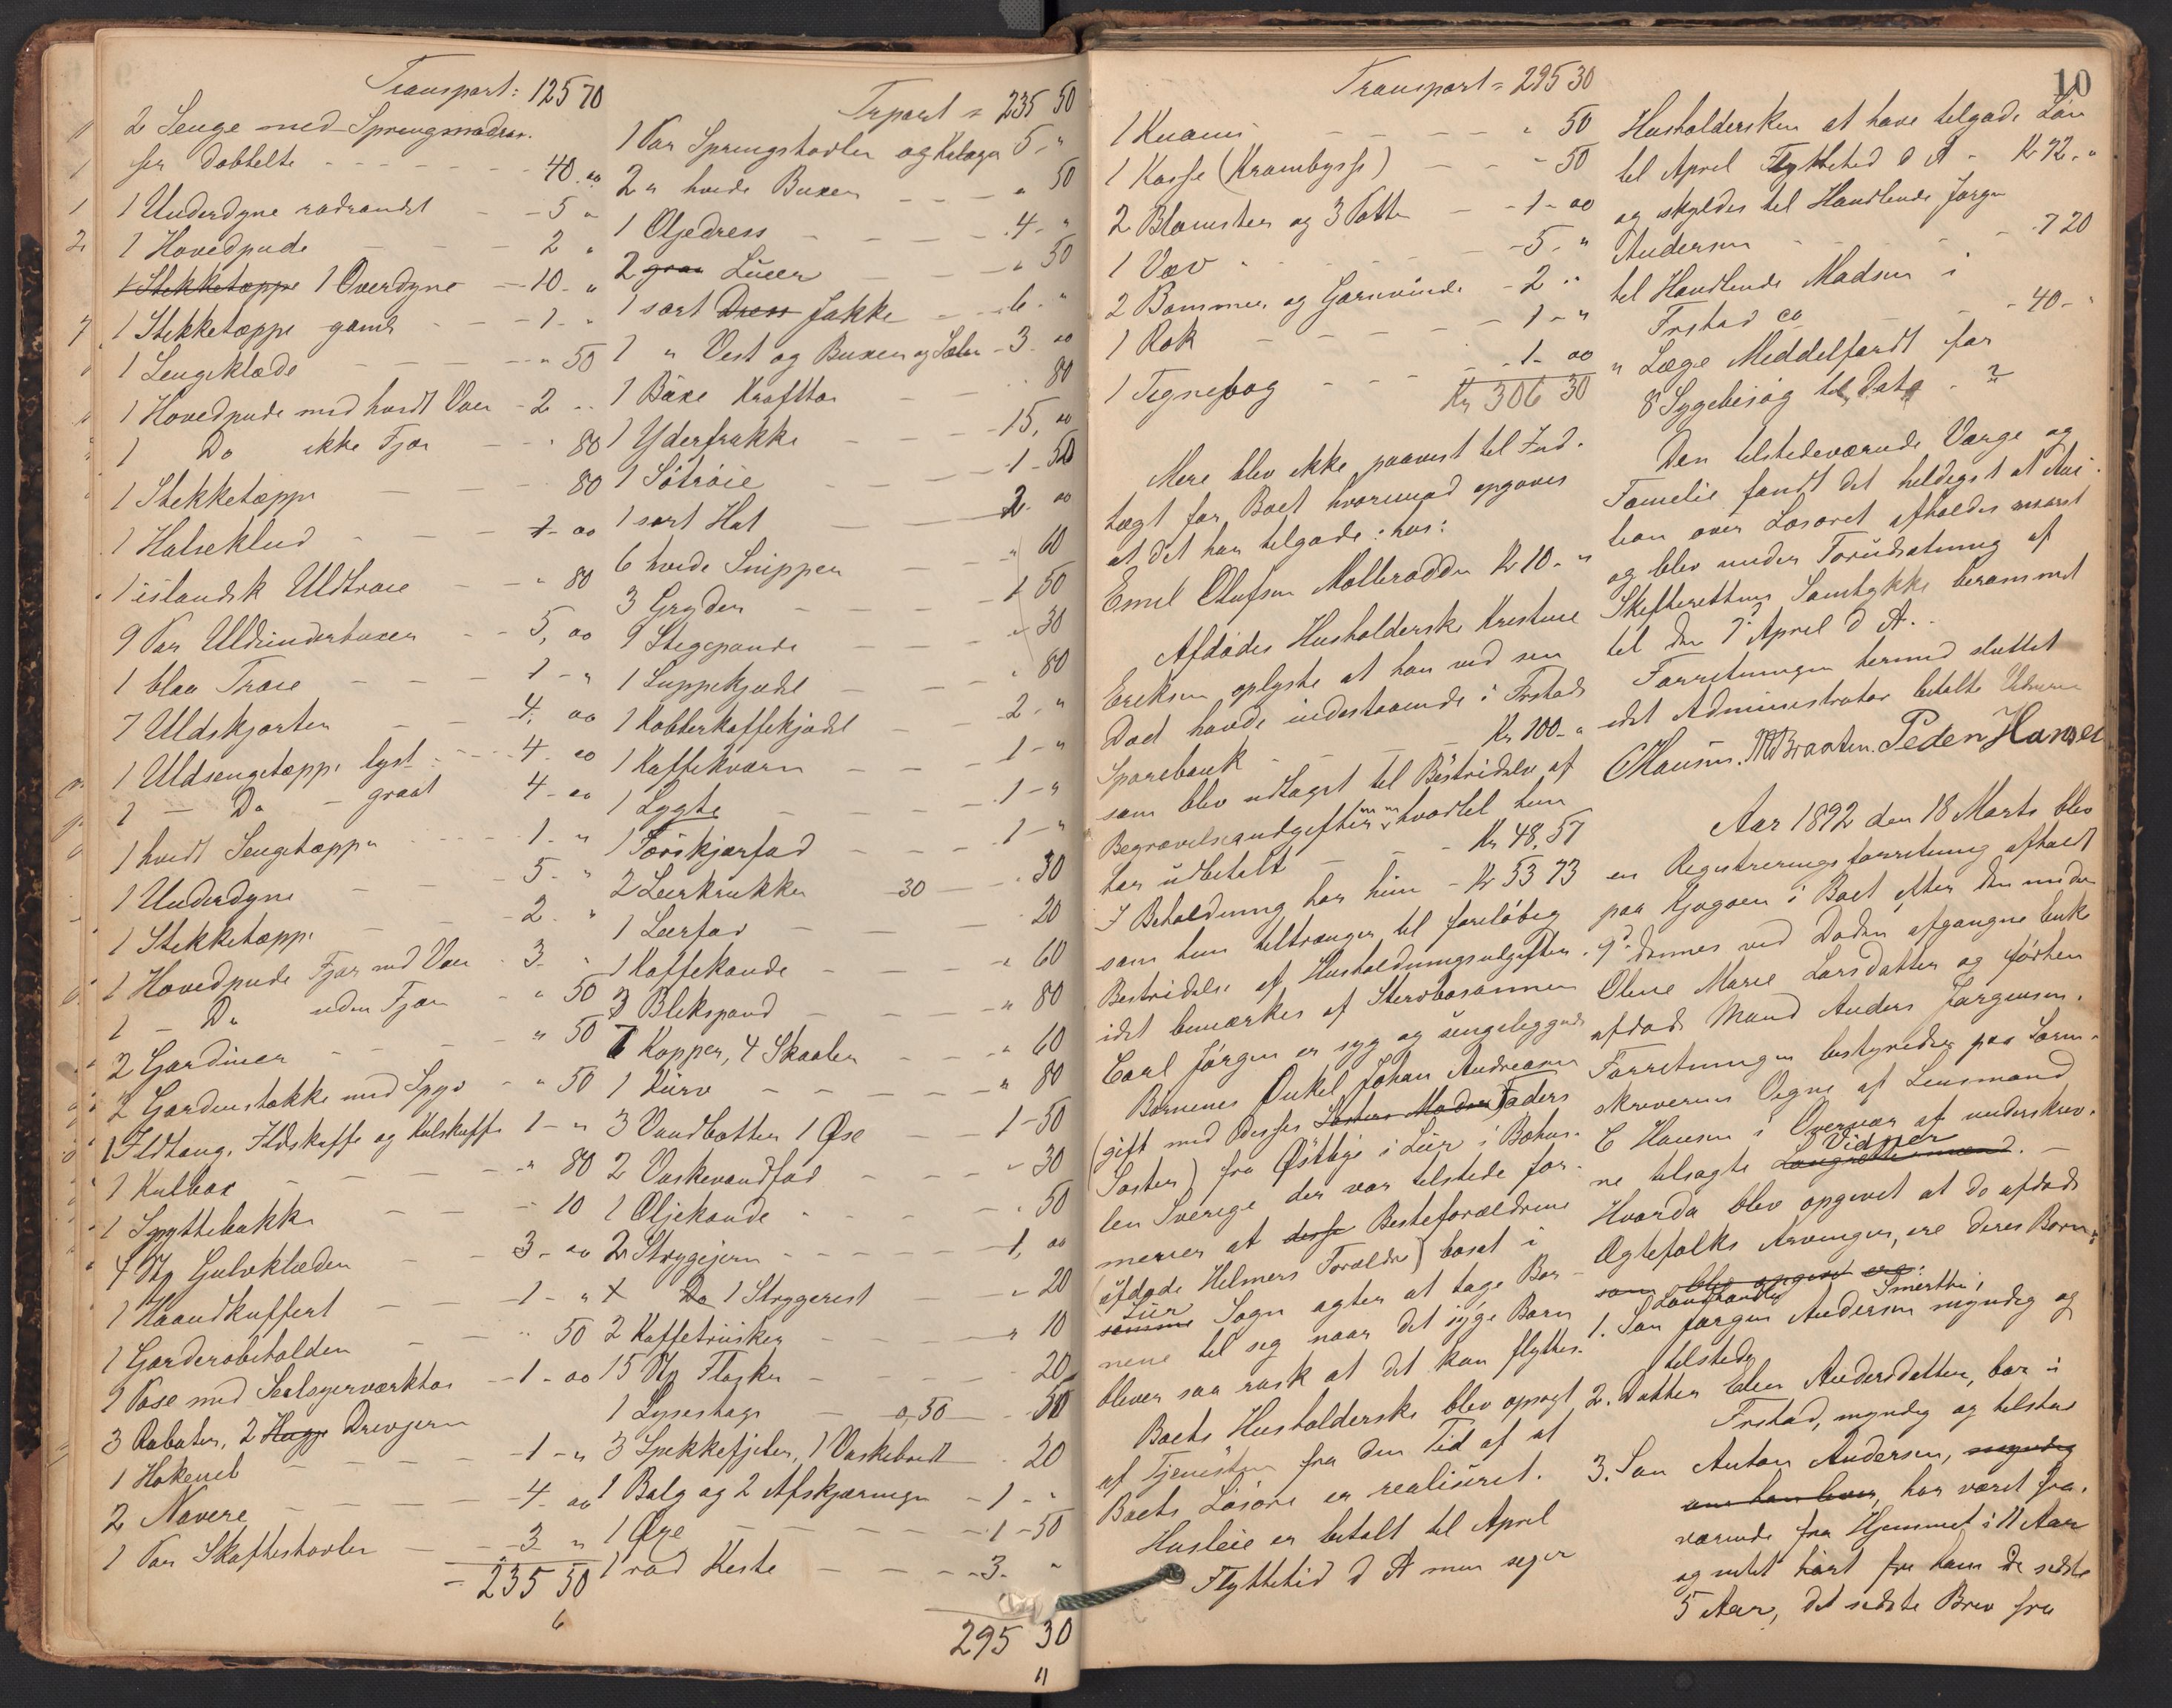 Transport: 125 70
2 Senge med Springmadras.
for dobbelte - - - 40. 00
1 Underdyne rødrandet - - 5 "
1 Hovedpude - - 2 "
1 Stikketæppe 1 Overdyne - 10 - "
1 Stikketæppe gamle - - 1 - "
1 Sengeklæde - - " 50
1 Hovedpude med hvidt Vaar - 2 "
1 Do ikke Fjær - - " 80
1 Stikketæppe - - 80
1 Halseklud - - 1 - 00
1 islandsk Uldtrøie - - " 80
9 Par Uldunderbuxer - - 5, 00
1 blaa Trøie - - 1 - "
7 Uldskjorter - - 4, 00
1 Uldsengetæppe lyst - - 4 - 00
1 - Do - graat 4 - 00
1 hvidt Sengetæppe - - 1 - "
1 Underdyne - - 5 - "
1 Stikketæppe - - 2 - "
1 Hovedpude Fjær med Vaar - 3 - "
1 - Do uden Fjær - " 50
2 Gardiner - - " 50
2 Gardinstokke med Spyd - " 50
1 Ildtang, Ildskuffe og Kulskuffe 1 - "
1 Kulbox - - " 80
1 Spyttebakke - - 10
4 Stkr Gulvklæder - - 3 - 00
1 Haandkuffert - 1 - "
1 Garderobeholder - " 50
1 Pose med Seilsyerværktøi - 1 - 00
3 Rabater, 2 Hugge Drevjern
1 Hakenel - - 1 - "
2 Navere - - 4 - 00
1 Par Skaftestøvler - - 3 "
- 235 50
6
Trport = 235 50
1 Par Springstøvler og Kalosjer 5 - "
2 " hvide Buxer - - " 50
1 Oljedress - - 4 - "
2 graa Luer - - " 50
1 sort Dress Jakke - - 6 - "
1 " Vest og Buxer og Seler - 3 00
1 Buxe Krafttøi - - 80
1 Yderfrakke - - 15, 00
1 Søtrøie - - 1 - 50
1 sort Hat - - 2 00
6 hvide Snipper - - " 60
3 Gryder - - 1 50
1 Stegepande - - " 30
1 Suppekjedel - - " 80
1 Kobberkaffekjedel - 2 - "
1 Kaffekværn - - 1 - "
1 Lygte - - 1 - "
1 Forskjærfad - - 1 - "
2 Leerkrukker 30 - " 30
1 Leerfad - - 20
1 Kaffekande - - " 60
3 Blekspand - - " 80
7 Kopper, 4 Skaaler - - " 60
1 Kurv - - " 80
3 Vandbøtter 1 Øse - - 1 - 50
2 Vaskevandfad - - " 30
1 Oljekande - - " 50
2 Strygejern - - 1, 00
Do 1 Strygerest - - " 20
2 Kaffetrusker - - " 10
15 Stkr Flasker - - 20
1 Lysestage - 0,50 - 50
3 Spekkefjeler, 1 Vaskebrett - 20
1 Balg og 2 Afskjæringer - 1 - "
1 Øxe - - 1 - 50
1 rød Keste - - 3 - "
295 30
11
Transport = 295 30
1 Knams - - " 50
1 Kasse (Krambysse) - - 50
2 Blomster og 3 Potter - - 1 - 00
1 Væv - - 5 - "
2 Bommer og Garnvinde - 2 - "
1 Rok - - 1 - "
1 Tegnebog - - 1 - 00
Kr 306 30
Mere blev ikke paavist til Ind-
tægt for Boet hvorimod opgaves
at det har tilgode hos:
Emil Olufsen Møllerødden Kr 10 - "
Afdødes Husholderske Kristine
Eriksen oplyste at han ved sin
Død havde indestaaende i Frstad
Sparebank - - Kr 100 - "
som blev udtaget til Bestridelse af
Begravelseudgifter hvortil hun
har udbetalt - - Kr 48,57
I Beholdning har hun - Kr 53 73
som hun tiltrænger til foreløbig
Bestridelse af Husholdningsudgifter.
idet bemærkes af Stervbosønnen
Carl Jørgen er syg og sengeliggende
Børnenes Onkel Johan Andreasen
(gift med disses Søsters Moder Faders
Søster) fra Østbye i Lur i Bohus-
len Sverige der var tilstede for-
mener at disse Besteforældrene
(afdøde Helmers Forældre) bosat i
Lur
samme Sogn agter at tage Bør-
nene til sig naar det syge Barn
bliver saa rask at det kan flyttes.
Boets Husholderske blev opsagt
af Tjenesten fra den Tid af at
Boets Løsøre er realiseret.
Husleie er betalt til April
Flyttetid d A men siger
10
Husholdersken at have tilgode Løn
til April Flyttetid d A - Kr 72. "
og skyldes til Handlende Jørgen
Andersen - - 7 20
til Handlende Madsen i
Frstad ca - - 40 - "
" Læge Middelfardt for
8 Sygebesøg til Dato - ?
Den tilstedeværende Værge og
Familie fandt det heldigst at Auk-
tion over Løsøret afholdes snarest
og blev under Forudsætning af
Skifterettens Samtykke berammet
til den 7d April d A.
Forretningen hermed sluttet
idet Administrator betalte Vidnerne
CHansen. MBraaten. Peder Hansen
Aar 1892 den 18 Marts blev
en Registreringsforretning afholdt
paa Kjøgøen i Boet efter den under
9d dennes ved Døden afgangne Enke
Oline Marie Larsdatter og førhen
afdøde Mand Anders Jørgensen.
Forretningen bestyredes paa Soren-
skriverens Vegne af Lensmand
C Hansen i Overvær af underskrev-
Vidner
ne tilsagte Laugrettesmænd. -
Hvorda blev opgivet at de afdøde
Ægtefolks Arvinger, ere deres Børn:
som blev opgivet ere:
Landhandler Smertthe,
1. Søn Jørgen Andersen myndig og
tilstede
2. Datter Elen Andersdatter, bor i
Frstad, myndig og tilstede
3. Søn Anton Andersen, myndig
om han lever, har været fra-
værende fra Hjemmet i 11 Aar
og intet hørt fra ham de sidste
5 Aar, det sidste Brev fra